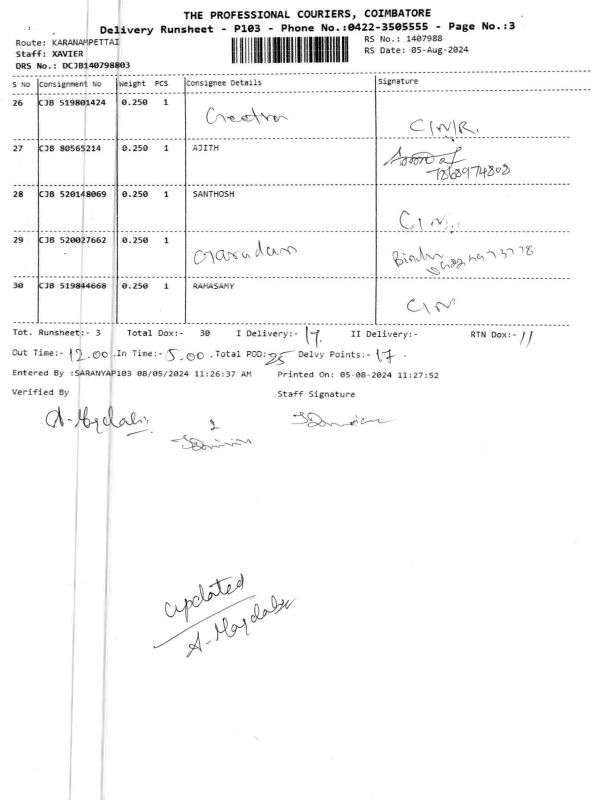 THE PROFESSIONAL COURIERS, COIMBATORE
Delivery Runsheet - P103 - Phone No.:0422-3505555 - Page No.:3
Route: KARANAMPETTAI
RS No.: 1407988
Staff: XAVIER
RS Date: 05-Aug-2024
DRS No.: DCJB140798803
S No Consignment No Weight PCS Consignee Details Signature
26 CJB 519801424 0.250 1
27 CJB 80565214 0.250 1 AJITH
7868974808
28 CJB 520148069 0.250 1 SANTHOSH
29 CJB 520027662 0.250 1
30 CJB 519844668 0.250 1 RAMASAMY
Tot. Runsheet:- 3 Total Dox:- 30 I Delivery:- 17. II Delivery:- RTN Dox:- 11
Out Time:- 12.00 In Time:- 5.00 Total POD: 25 Delvy Points:- 17.
Entered By :SARANYAP103 08/05/2024 11:26:37 AM Printed On: 05-08-2024 11:27:52
Verified By Staff Signature
updated